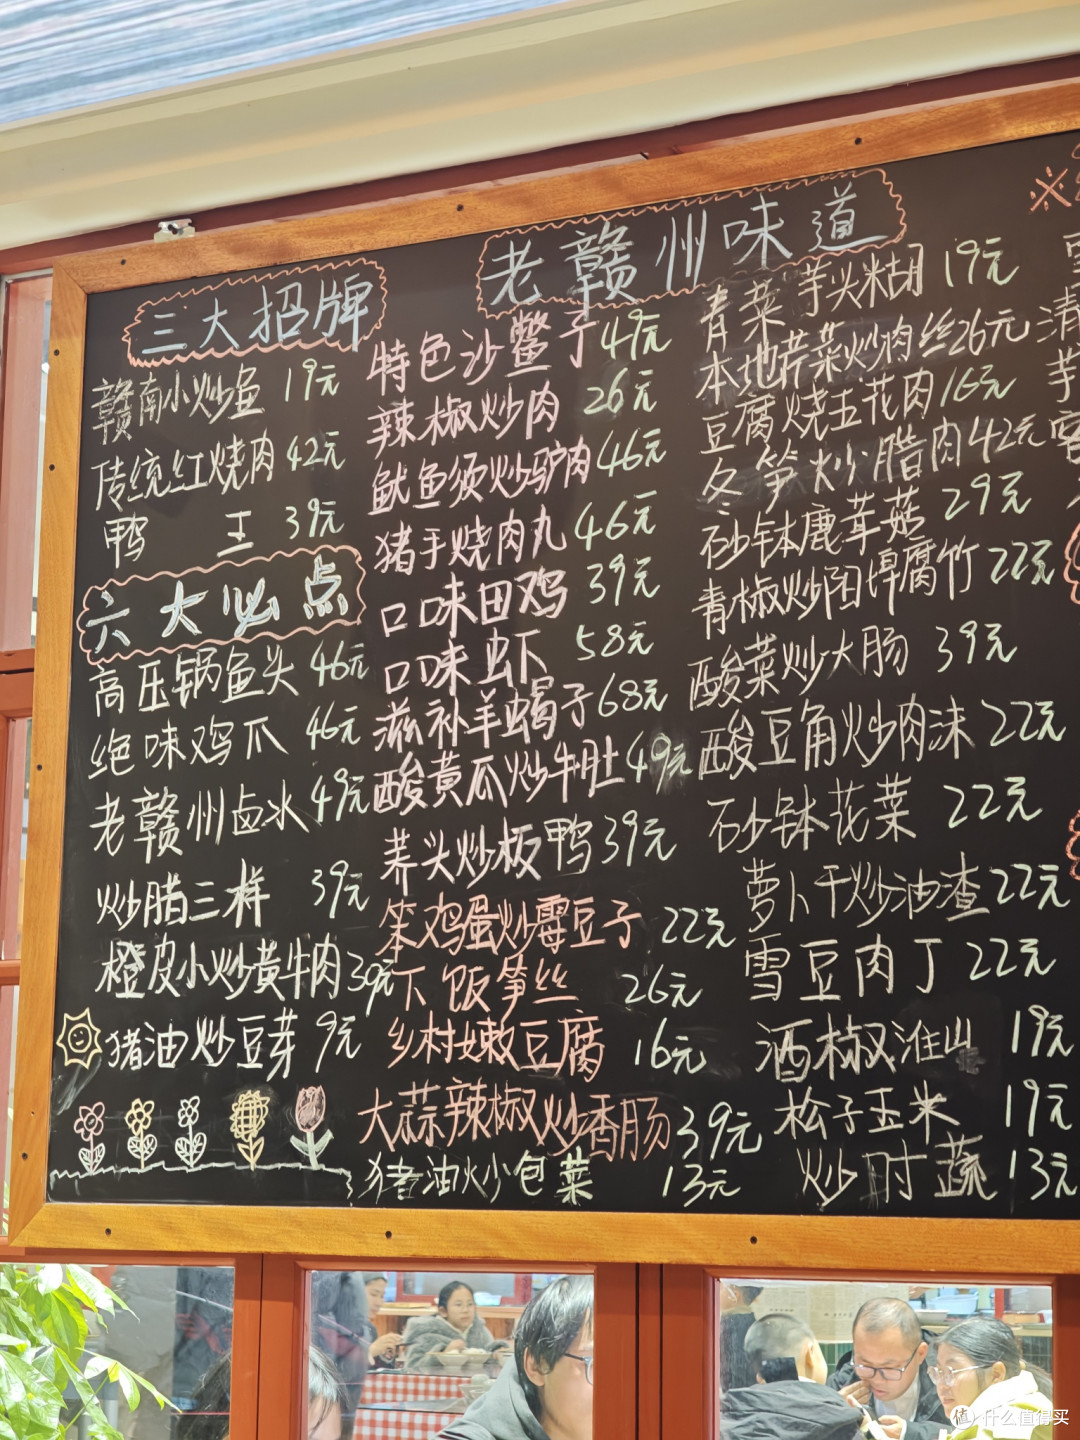 三大招牌
赣南小炒鱼 19元
传统红烧肉 42元
鸭 王 39元
六大必点
高压锅鱼头 46元
绝味鸡爪 46元
老赣州卤水 49元
炒腊三样 39元
橙皮小炒黄牛肉 39元
猪油炒豆芽 9元
老赣州味道
特色沙鳖子 49元
辣椒炒肉 26元
鱿鱼须炒驴肉 46元
猪手烧肉丸 46元
口味田鸡 39元
口味虾 58元
滋补羊蝎子 68元
酸黄瓜炒牛肚 49元
荞头炒板鸭 39元
笨鸡蛋炒霉豆子 22元
下饭笋丝 26元
乡村嫩豆腐 16元
大蒜辣椒炒香肠 39元
猪油炒包菜 13元
青菜芋头糊 19元
本地芹菜炒肉丝 26元
豆腐烧五花肉 16元
冬笋炒腊肉 42元
砂钵鹿茸菇 29元
青椒炒阳埠腐竹 22元
酸菜炒大肠 39元
酸豆角炒肉沫 22元
砂钵花菜 22元
萝卜干炒油渣 22元
雪豆肉丁 22元
酒椒淮山 19元
松子玉米 19元
炒时蔬 13元
※
清
芋
值 什么值得买